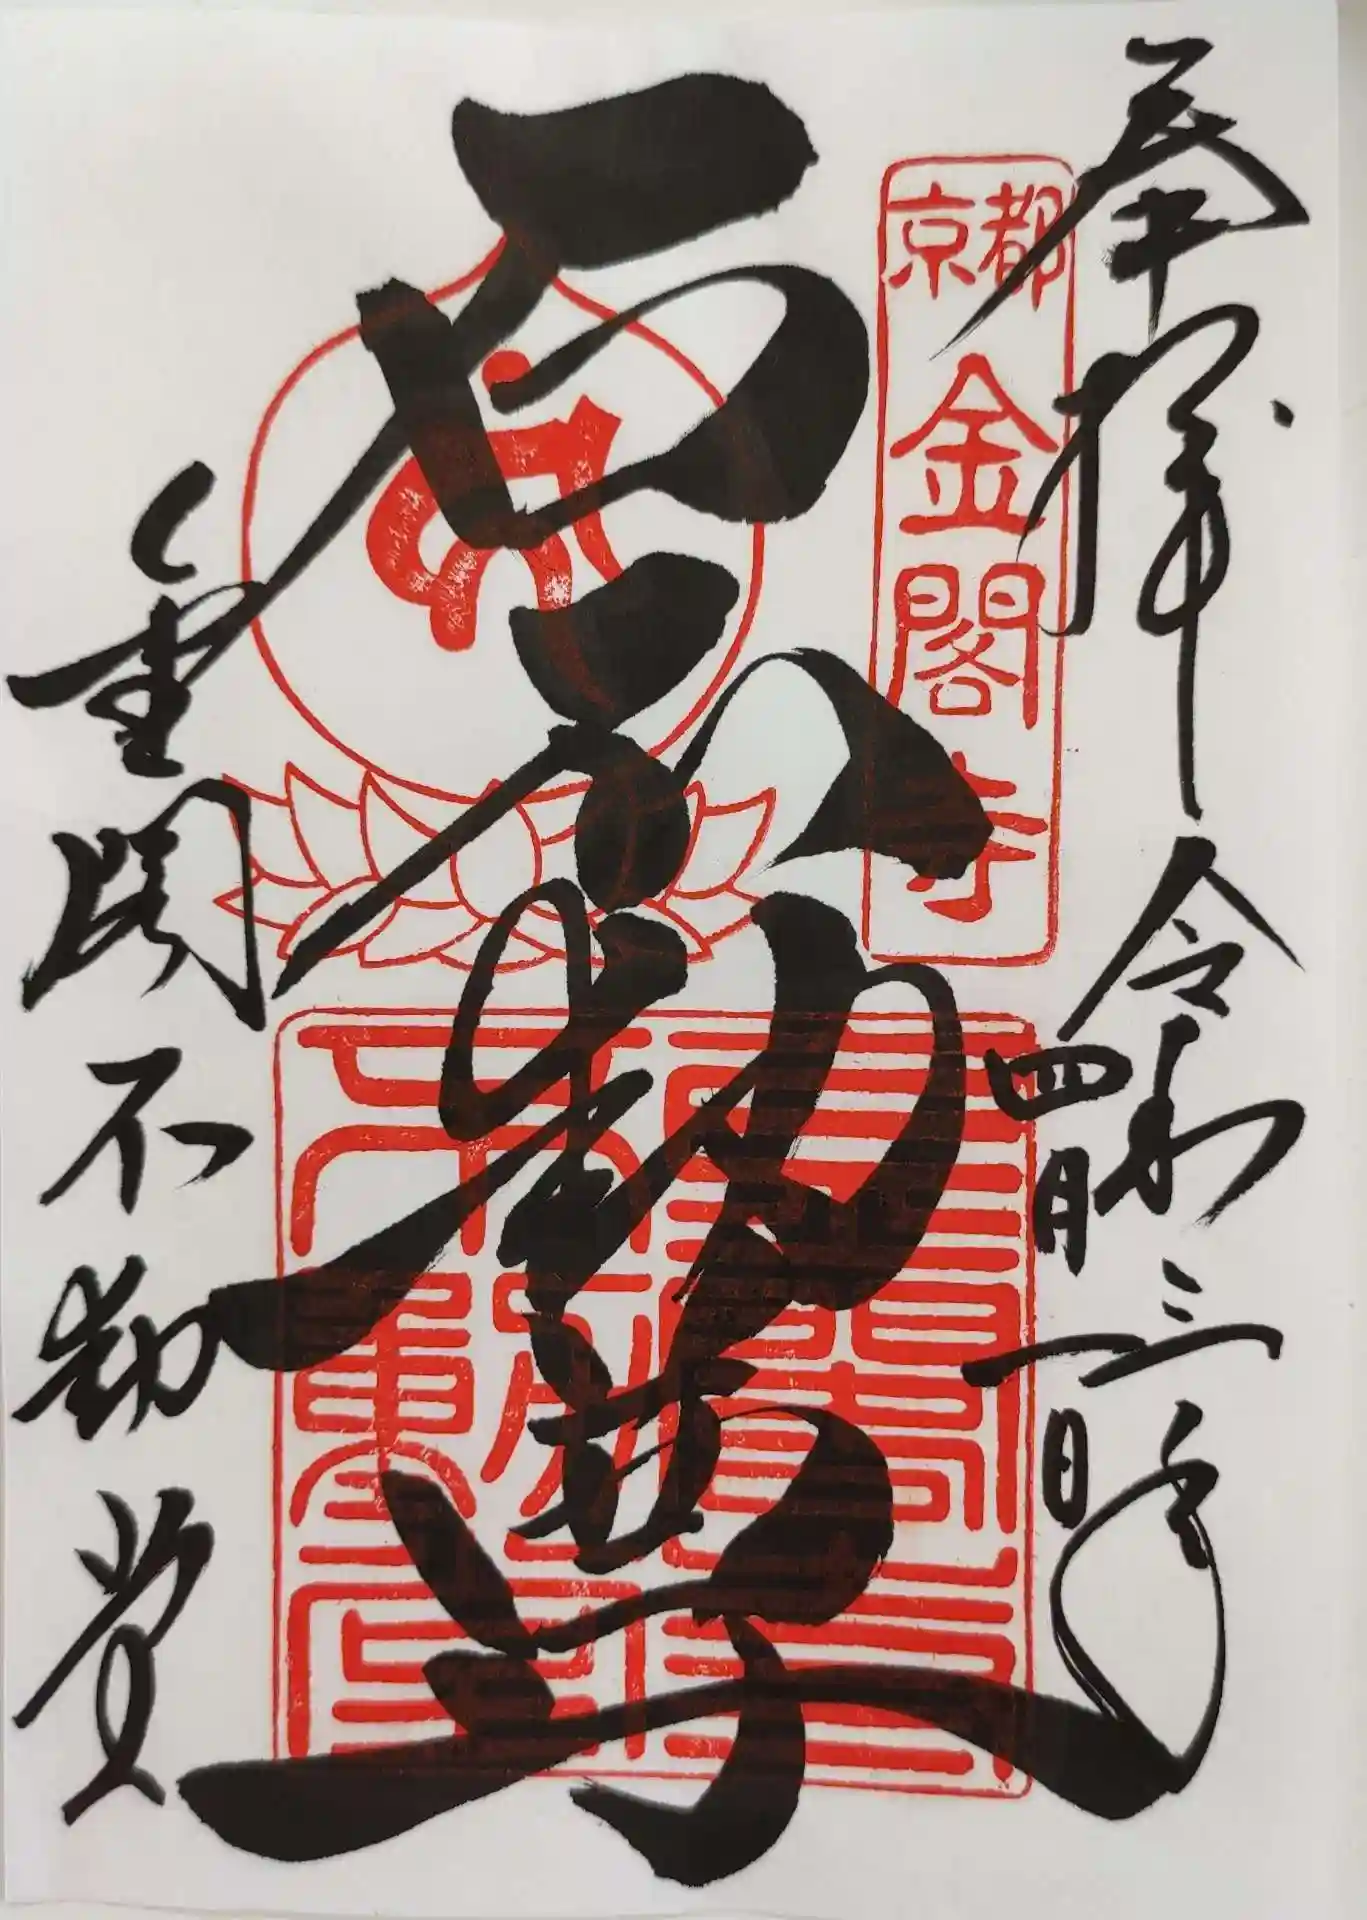 奉拝 令和三年
四月一日
京都
金閣寺
石不動尊
金閣不動堂